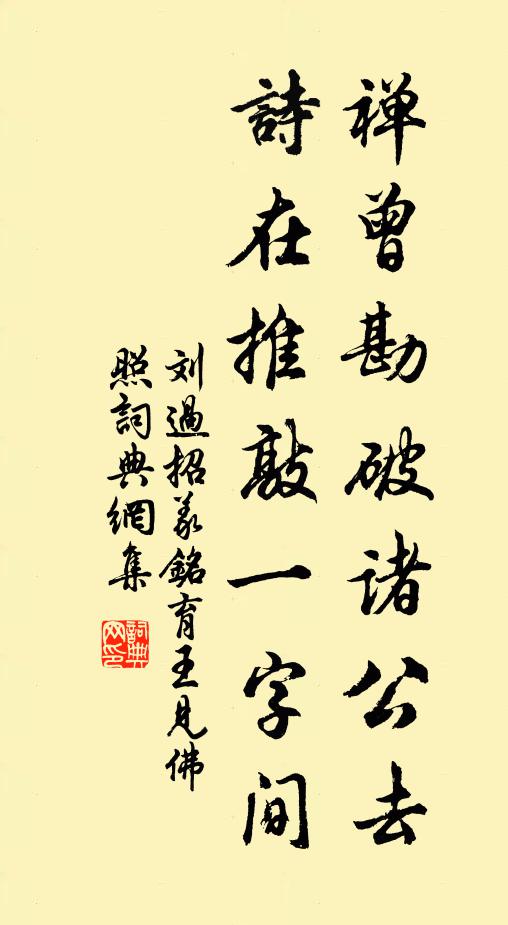 禅曾勘破诸公去
詩在推敲一字间
刘過招义銘育王見佛
照詞典網集
詞典
网印